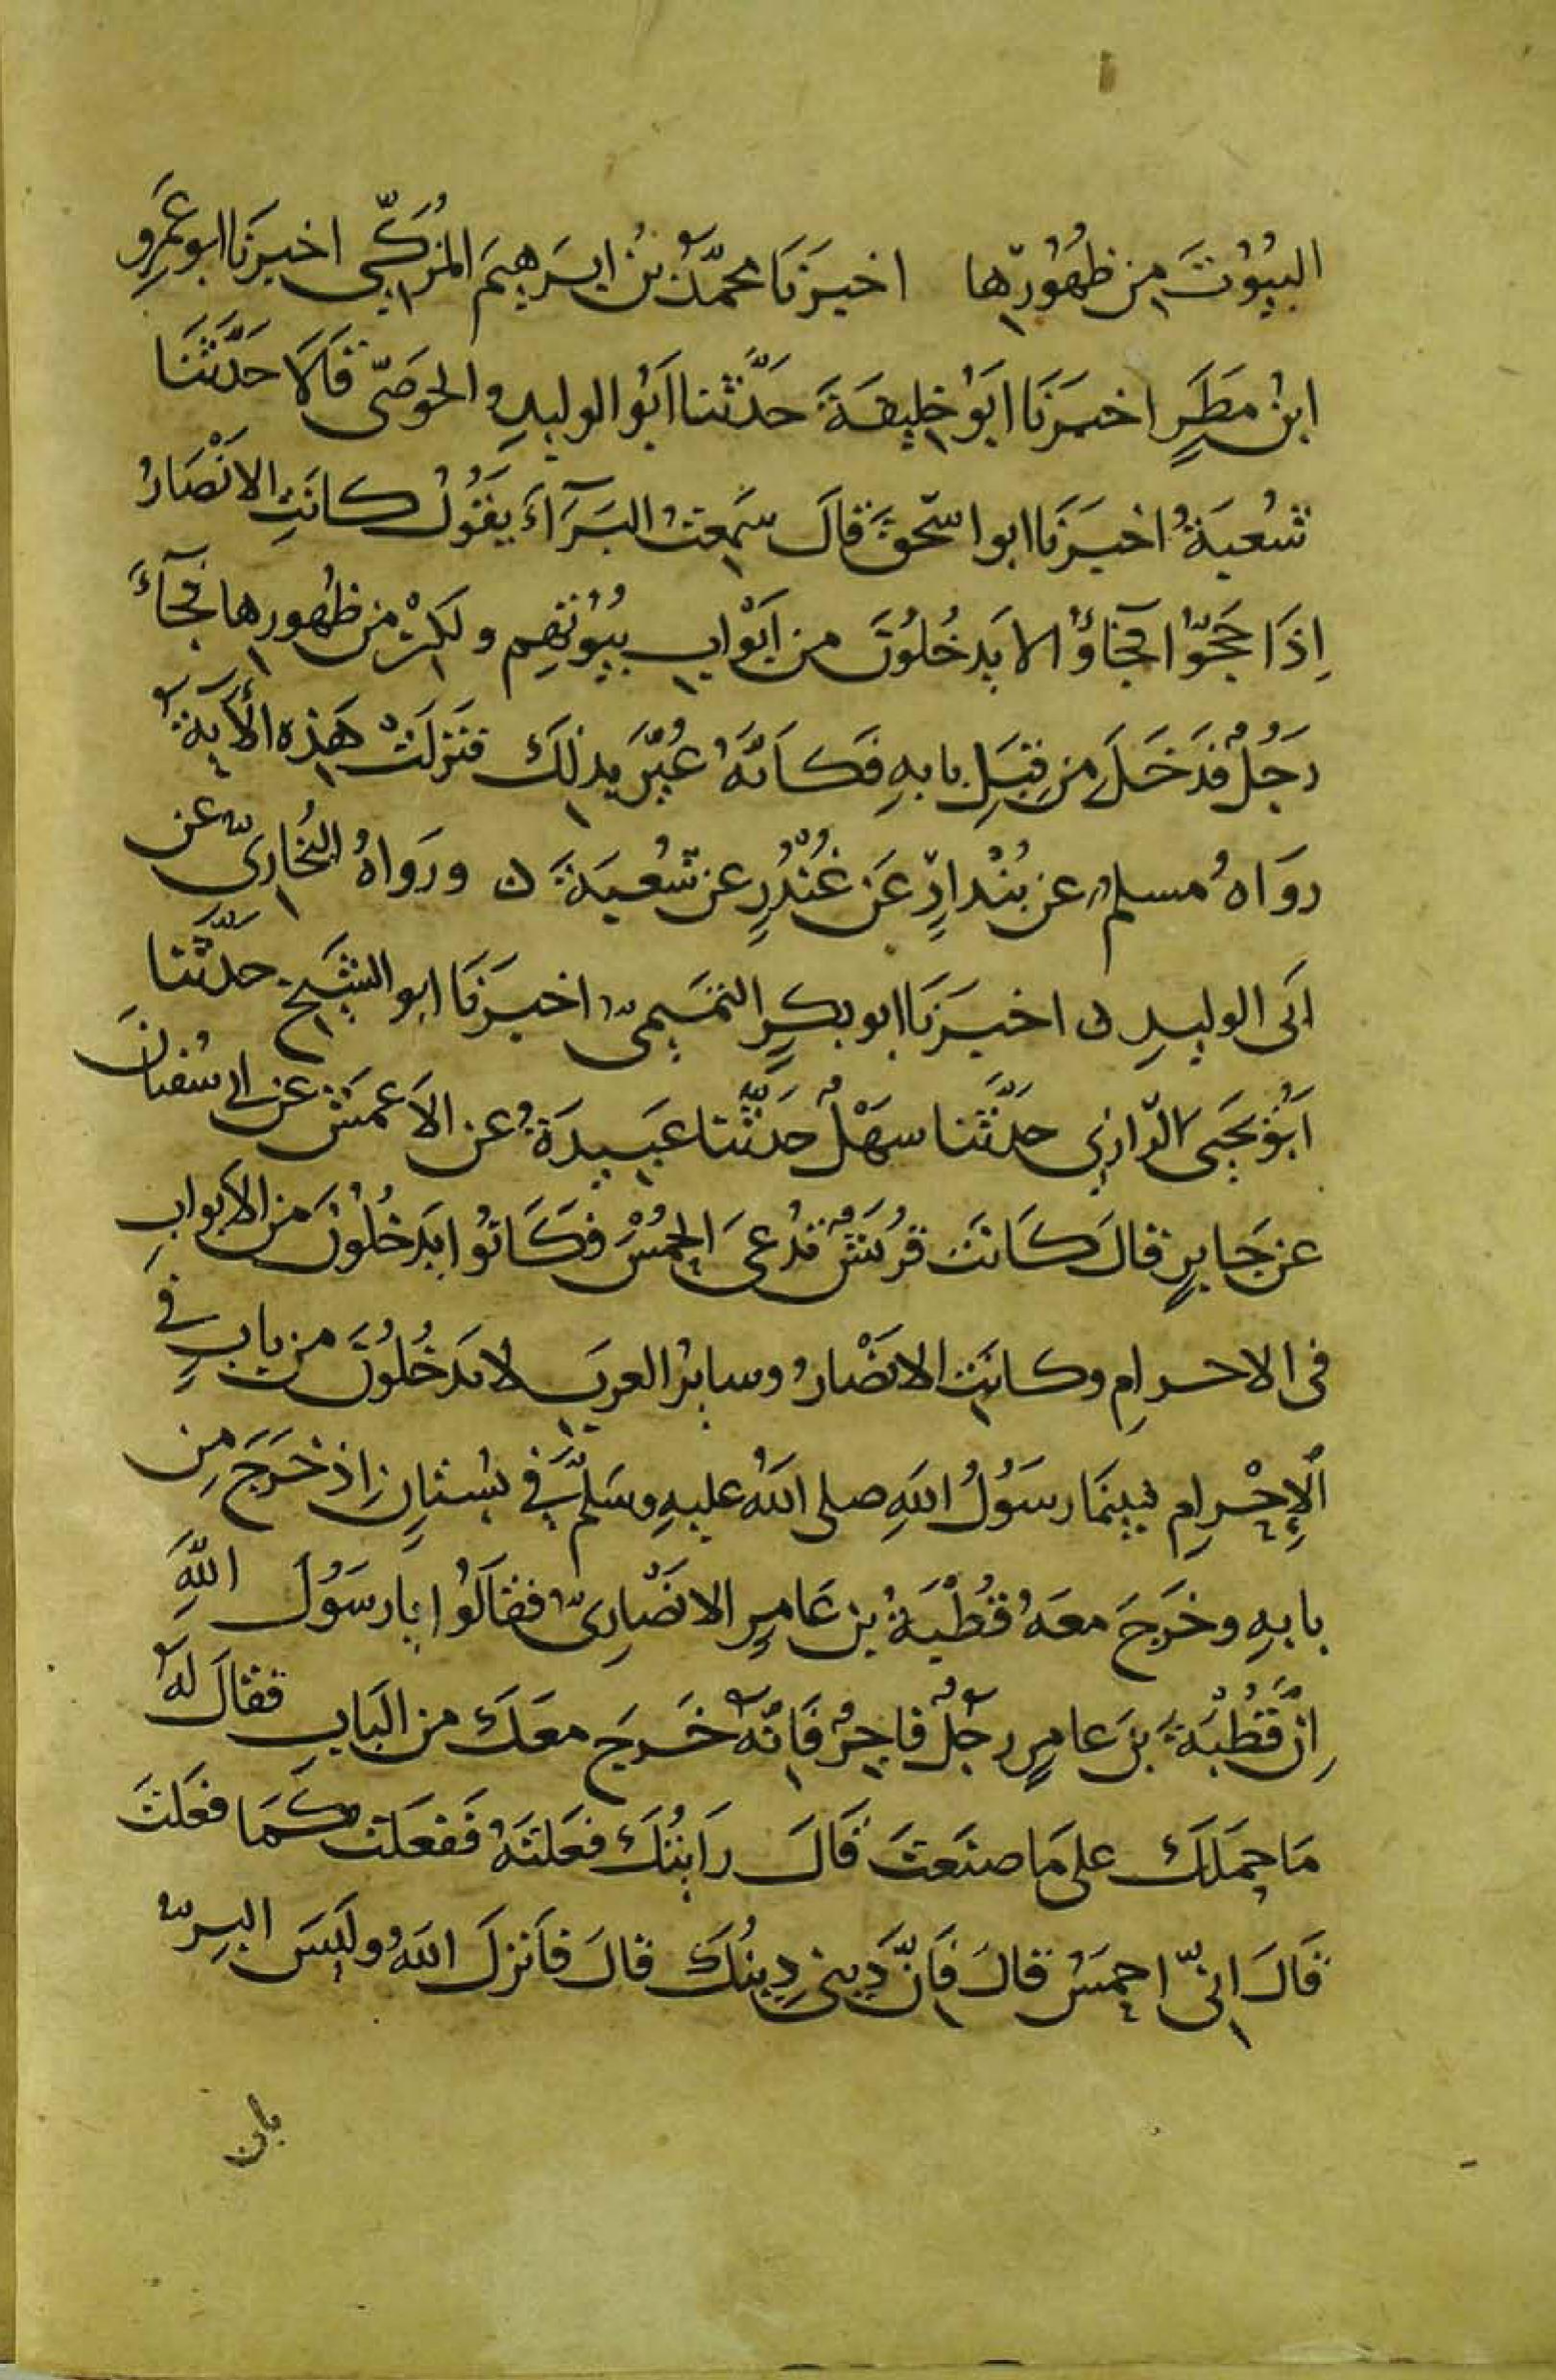 البُيُوْتَ من ظُهُوْرِها اخبرَنَا محمّدُ بنُ ابرَهِيمَ المُزَكّي اخبرَنا ابو عَمرِو
ابنُ مَطَرٍ اخبَرَنَا ابَوُ خَليفَةَ حَدّثَنا ابَوُ الوليدِ والحوضَىّ قَالَا حَدّثَنا
شُعبَةُ اخبرَنَا ابو اسحقَ قالَ سَمِعتُ البَرَآءَ يَقُولُ كانَتِ الانْصَارُ
اِذَا حَجّوُا فجآؤُا لا يَدخُلُونَ من اَبْوابِ بيُوُتِهِم ولكنْ من ظُهورِها فجآءَ
رَجُلٌ فدَخَلَ من قِبَلِ بابهِ فكَانّهُ عُيِّرَ بِذلكَ فَنَزَلَتْ هَذِه الأَيَةُ
روَاهُ مسلمٌ عن بُنْدارٍ عَن غُنْدُرٍ عن شُعبَةَ ن ورَواهُ البُخاريّ عن
ابَى الوليدِ ن اخبَرَنَا ابو بكرٍ التمَيمىّ اخبرَنَا ابو الشَيخِ حَدّثَنا
اَبُو يحَيى الرّازي حَدّثَنا سَهْلٌ حَدّثَنا عَبيدَةُ عن الاَعمَش عن ابى سُفيانَ
عن جَابرٍ قالَ كَانَتَ قرَيشٌ تدُعىَ الحُمْسَ فكَانوُا يَدخُلُونَ من الاَبوابِ
فى الاحرامِ وكانَتِ الانصْارُ وسايرُ العربَ لا يَدخُلُونَ من بابٍ في
الاِحْرامِ فبينَمَا رسَوُلُ اللهِ صلى اللهُ عليهِ وسَلّمَ في بُستانٍ اِذْ خرَجَ مِن
بابهِ وخرَجَ معَهُ قُطْبَةُ بن عَامرٍ الانصَاريّ فقالَوُا يا رسَوُلَ اللهِ
اِنّ قُطْبَةَ بنَ عامرٍ رجُلٌ فاجِرٌ فَانّهُ خَرجَ معَكَ من البَابِ فقالَ لهُ
مَا حمَلَكَ على مَا صنَعتَ قَالَ رَايتُكَ فعَلتَهُ فَفعَلتُ كمَا فعَلتَ
قَالَ انّى احمَسُ قالَ فَانّ دِيني دِينُكَ قالَ فاَنزلَ اللهُ وليَسَ البِرّ
بان